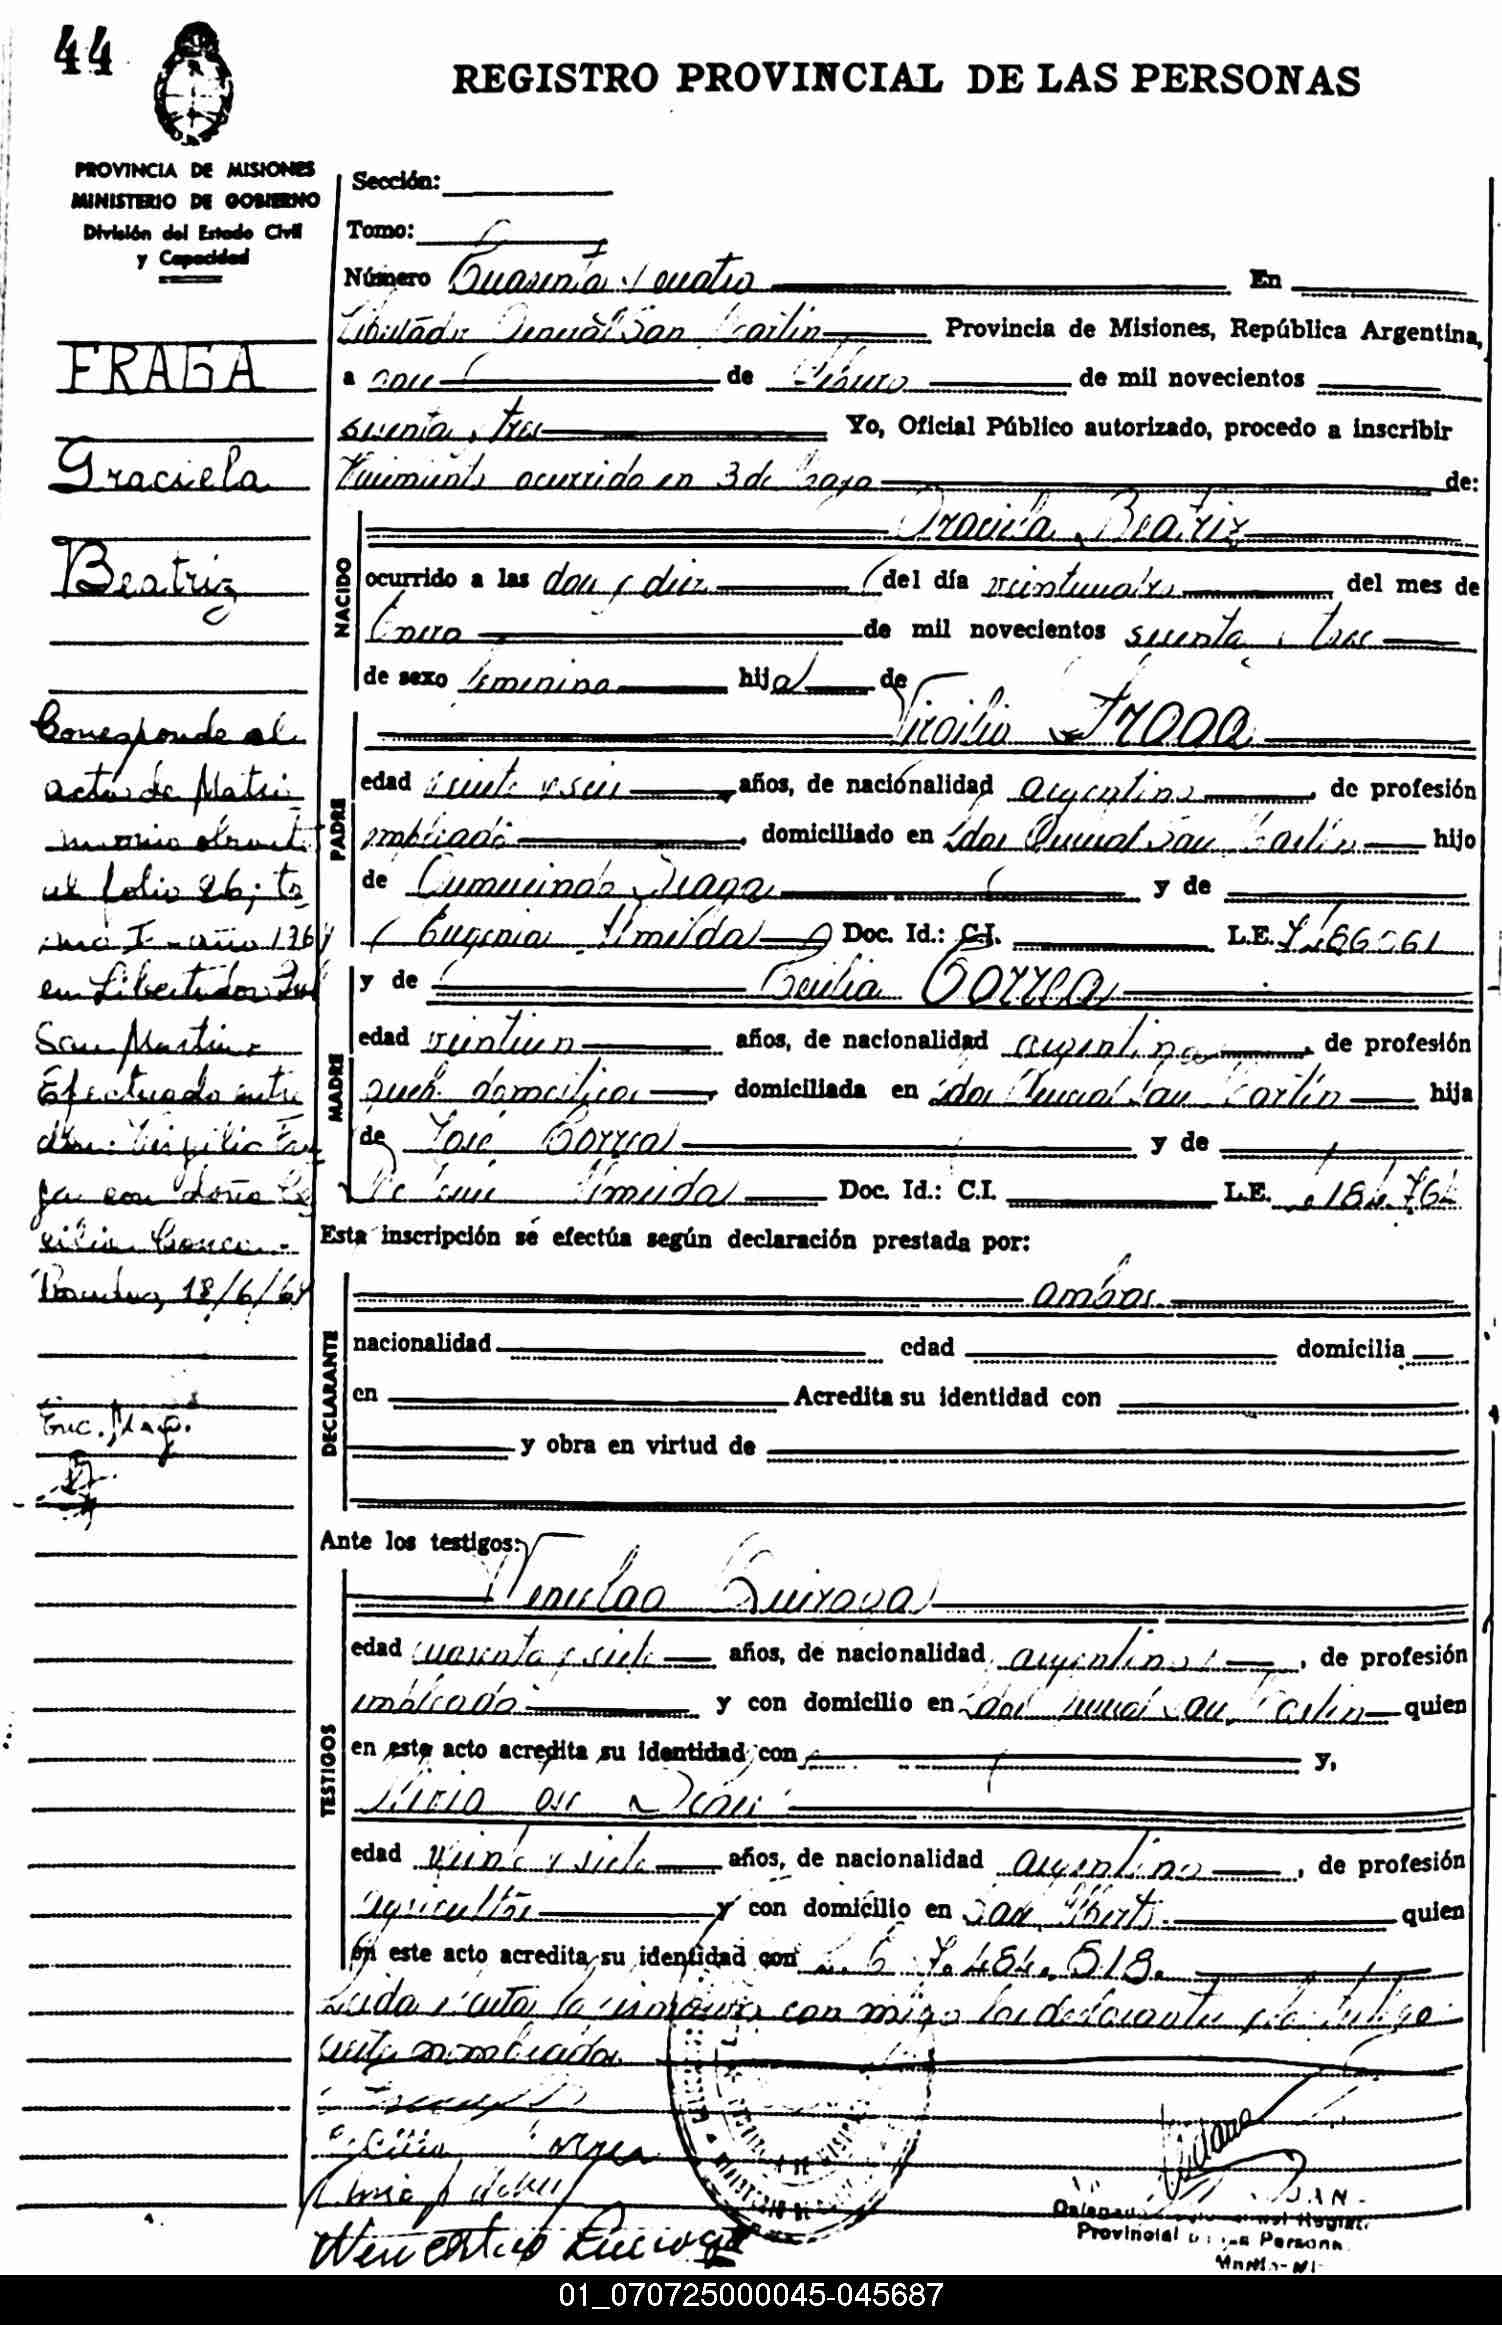 44
REGISTRO PROVINCIAL DE LAS PERSONAS
PROVINCIA DE MISIONES
MINISTERIO DE GOBIERNO
División del Estado Civil
y Capacidad
FRAGA
Graciela
Beatriz
Corresponde al
acta de Matri
monio
al folio 26; to
mo I - año 196
en Libertador
San Martin
Efectuado entre
don: Virgilio Fra
ga con doña Ce
cilia Correa.-
18/6/64
Enc.
Sección:
Tomo:
Número Cuarenta y cuatro En
Libertador General San Martín Provincia de Misiones, República Argentina,
a once de Febrero de mil novecientos
sesenta y tres Yo, Oficial Público autorizado, procedo a inscribir
Nacimiento ocurrido en 3 de Mayo de:
NACIDO
Graciela Beatriz
ocurrido a las doce y diez del día veinticuatro del mes de
Enero de mil novecientos sesenta y tres
de sexo femenino hija de
PADRE
Virgilio Fraga
edad años, de nacionalidad argentino, de profesión
empleado, domiciliado en Ldor General San Martín hijo
de Gumercindo Fraga y de
Eugenia Doc. Id.: C.I. L.E.
MADRE
y de Cecilia Correa
edad veintiun años, de nacionalidad argentina, de profesión
domestica, domiciliada en Ldor General San Martín hija
de José Correa y de
Doc. Id.: C.I. L.E.
Esta inscripción se efectúa según declaración prestada por:
DECLARANTE
ambos.
nacionalidad edad domicilia
en Acredita su identidad con
y obra en virtud de
Ante los testigos:
TESTIGOS
Wenceslao Quiroga
edad cuarenta y siete años, de nacionalidad argentino, de profesión
empleado y con domicilio en Ldor General San Martin quien
en este acto acredita su identidad con y,
edad veinte y siete años, de nacionalidad argentino, de profesión
agricultor y con domicilio en San Alberto quien
en este acto acredita su identidad con L.E 7.484.518.
Leida el acta la firmaron con migo los declarantes y los testigos
nombrados
Cecilia Correa
Wenceslao Quiroga
Provincial Persona
01_070725000045-045687